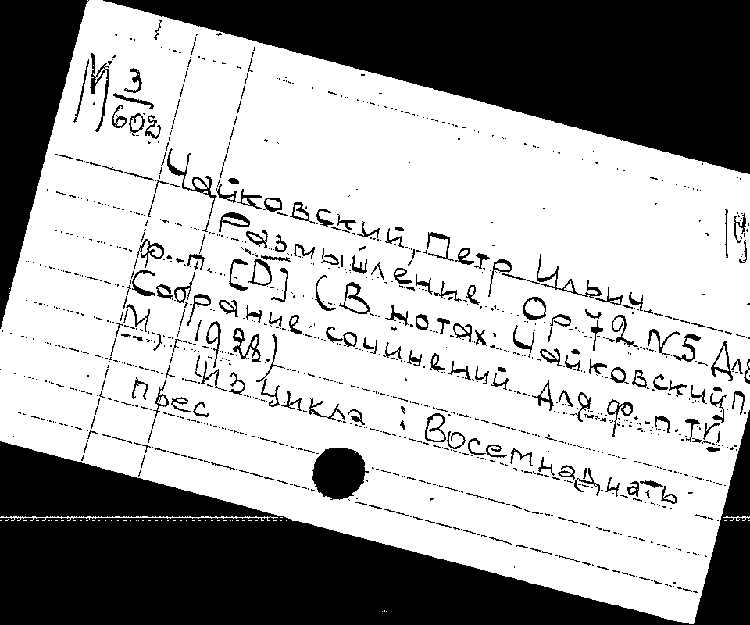 М 3/602
19
Чайковский, Петр Ильич
Размышление. Op 72 N5 Для
ф.-п. [D]. (В нотах: Чайковский П.
Собрание сочинений для ф.-п. т II
М, 1928.)
Из цикла: Восемнадцать
пьес